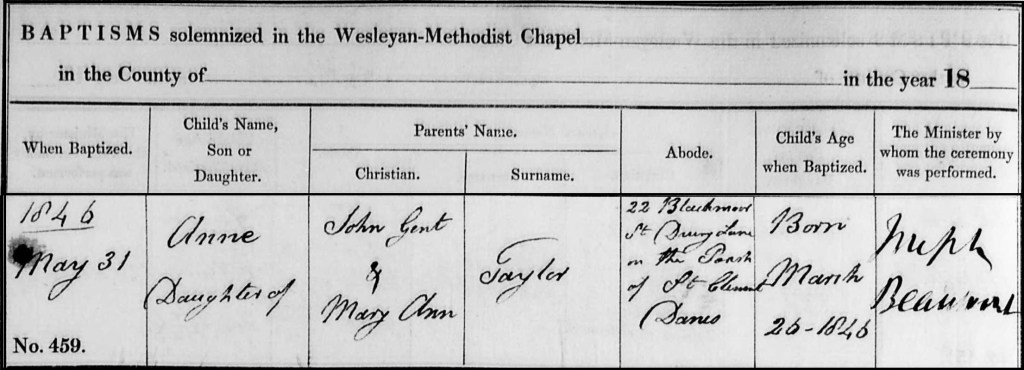 BAPTISMS solemnized in the Wesleyan-Methodist Chapel
in the County of in the year 18
When Baptized.
Child's Name,
Son or
Daughter.
Parents' Name.
Christian.
Surname.
Abode.
Child's Age
when Baptized.
The Minister by
whom the ceremony
was performed.
1846
May 31
Anne
Daughter of
John Gent
&
Mary Ann
Taylor
22 Blackmoor
St Drury Lane
in the Parish
of St Clement
Danes
Born
March
26-1846
Joseph
Beaumont
No. 459.